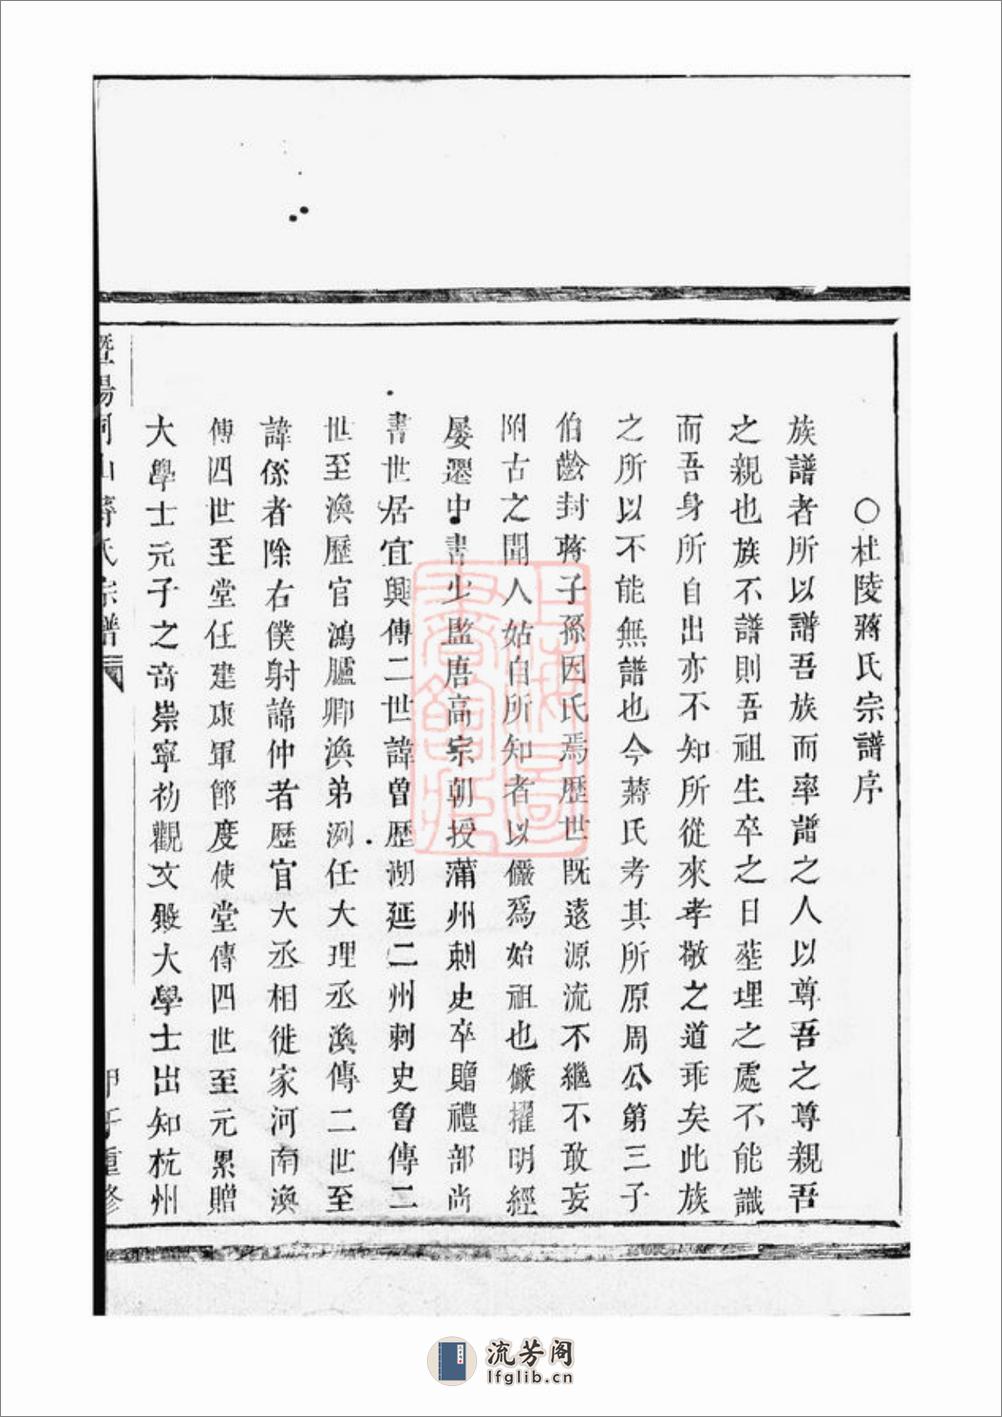 ○杜陵蔣氏宗譜序
族譜者所以譜吾族而率譜之人以尊吾之尊親吾
之親也族不譜則吾祖生卒之日塟埋之處不能識
而吾身所自出亦不知所從來孝敬之道乖矣此族
之所以不能無譜也今蔣氏考其所原周公第三子
伯齡封蔣子孫因氏焉歷世既遠源流不繼不敢妄
附古之聞人姑自所知者以儼爲始祖也儼擢明經
屡遷中書少監唐高宗朝授蒲州刺史卒贈禮部尚
書世居宜興傳二世諱曾歷湖延二州刺史曾傳二
世至渙歷官鴻臚卿渙弟洌任大理丞渙傳二世至
諱係者除右僕射諱仲者歷官大丞相徙家河南渙
傳四世至堂任建康軍節度使堂傳四世至元累贈
大學士元子之奇崇寧初觀文殿大學士出知杭州
暨陽 山蔣氏宗譜
甲子重修
流芳阁
lfglib.cn